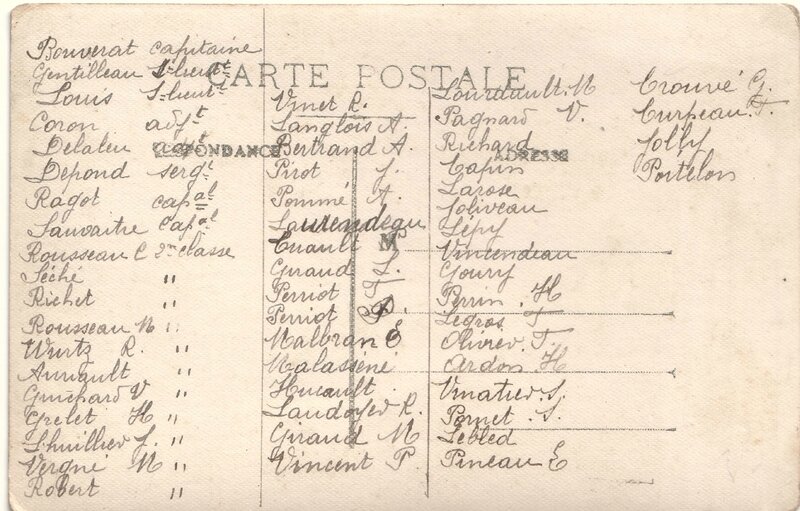 CARTE POSTALE
CORRESPONDANCE
ADRESSE
M
Bouverat capitaine
Gentilleau S-lieut^t
Louis S-lieut^t
Coron adj^t
Delaleu adj^t
Depond serg^t
Ragot cap^al
Sauvaitre cap^al
Rousseau C 2me classe
Séché "
Richet "
Rousseau M "
Wurtz R. "
Aurigault "
Guichard V "
Grelet H "
Lhuillier J. "
Vergne M "
Robert "
Vinet R.
Langlois A.
Bertrand A.
Pirot J.
Pommé A.
Laurendeau
Cuault
Giraud L.
Perriot T
Perriot D.
Malbran E
Malasséné
Hucault
Laudoyer R.
Giraud M
Vincent P
Lourdault. M
Pagnard V.
Richard
Capin
Larose
Joliveau
Lépy
Vincendeau
Goury
Perrin. H
Legros T
Olivier. T.
Ardon H
Vinatier. S.
Pomet. S.
Lebled
Pineau E
Crouvé G.
Curpeau. F.
Jolly
Poitelon